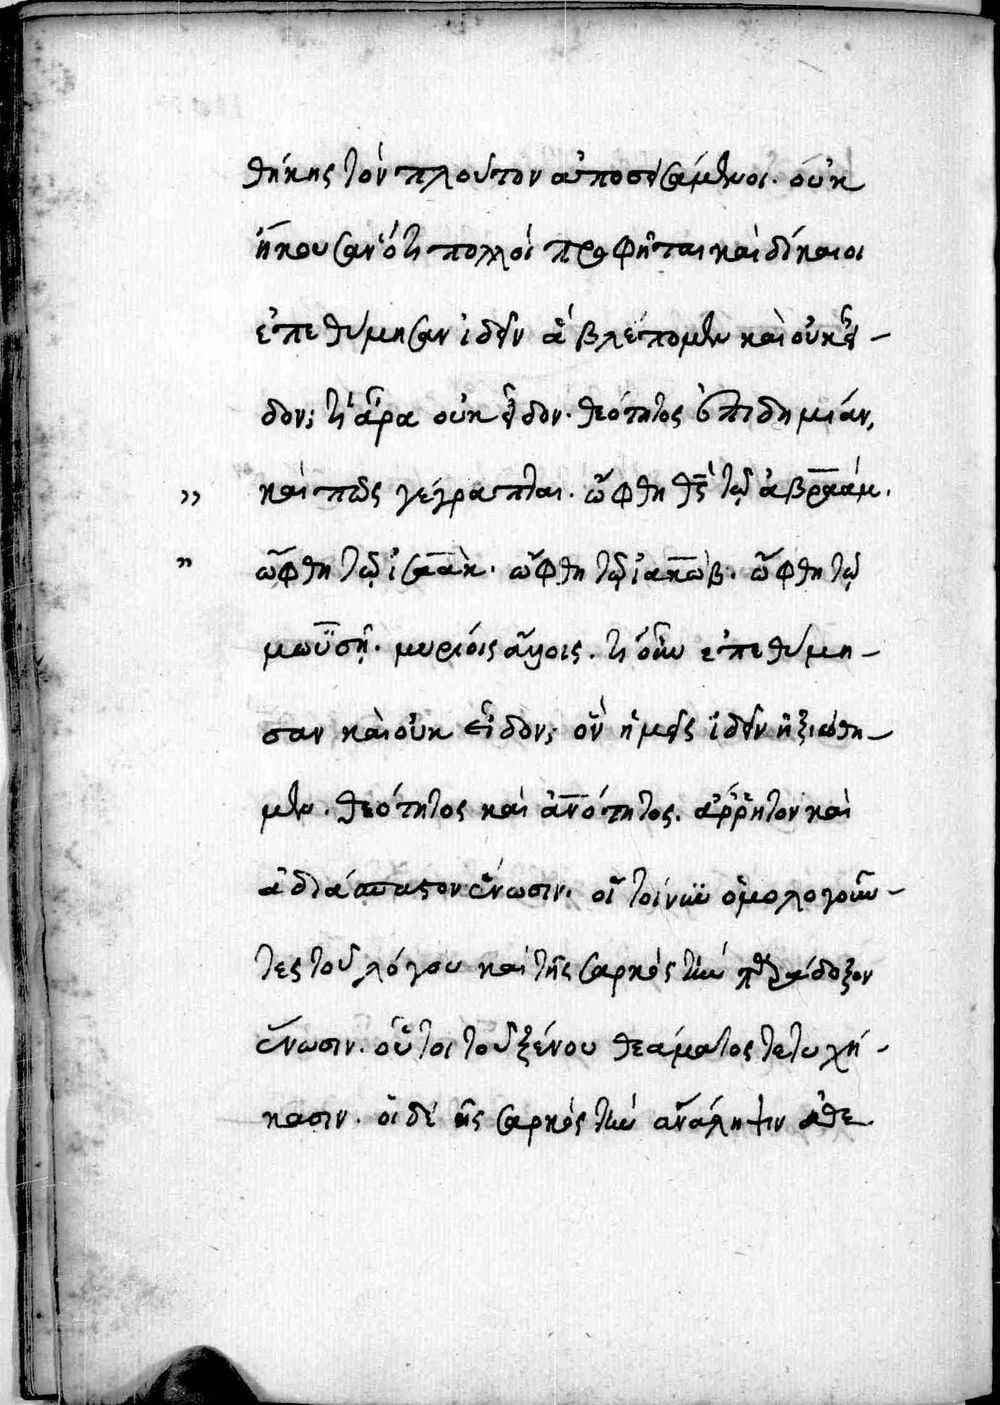 θήκης τὸν πλοῦτον ἀποσεισάμενοι. οὐκ
ἤκουσαν ὅτι πολλοὶ προφῆται καὶ δίκαιοι
ἐπεθύμησαν ἰδεῖν ἃ βλέπομεν καὶ οὐκ εἶ-
δον; τί ἄρα οὐκ εἶδον. θεότητος ἐπιδημίαν,
„ καὶ πῶς γέγραπται. ὤφθη θς̅ τῷ ἀβραάμ.
„ ὤφθη τῷ ἰσαάκ. ὤφθη τῷ ἰακώβ. ὤφθη τῷ
μωϋσῇ. μυρίοις ἄλλοις. τί οὖν ἐπεθύμη-
σαν καὶ οὐκ εἶδον; ὃν ἡμεῖς ἰδεῖν ἠξιώθη-
μεν. θεότητος καὶ ἀνο̅τητος. ἄρρητον καὶ
ἀδιάσπαστον ἕνωσιν. οἱ τοίνυν ὁμολογοῦν-
τες τοῦ λόγου καὶ τῆς σαρκὸς τὴν παράδοξον
ἕνωσιν. οὗτοι τοῦ ξένου θεάματος τετυχή-
κασιν. οἱ δὲ τῆς σαρκὸς τὴν ἀνάληψιν ἀθε